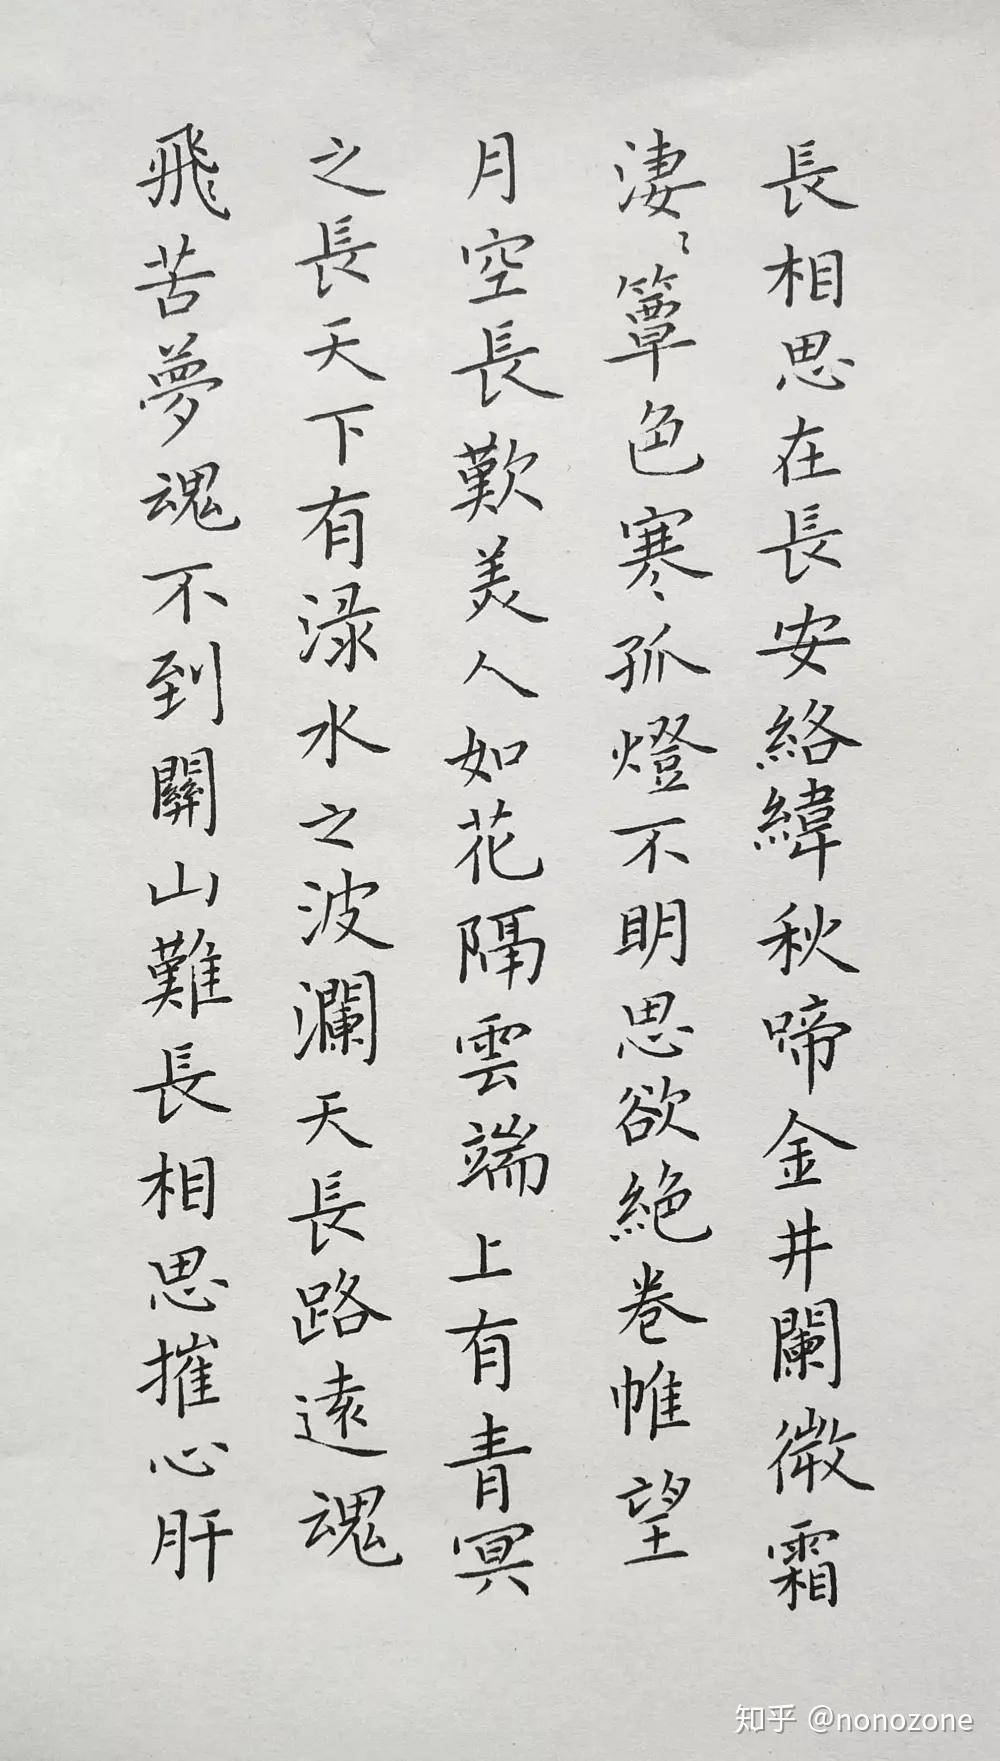 長相思在長安絡緯秋啼金井闌微霜
淒〻簟色寒孤燈不明思欲絕卷帷望
月空長歎美人如花隔雲端上有青冥
之長天下有淥水之波瀾天長路遠魂
飛苦夢魂不到關山難長相思摧心肝
知乎 @nonozone